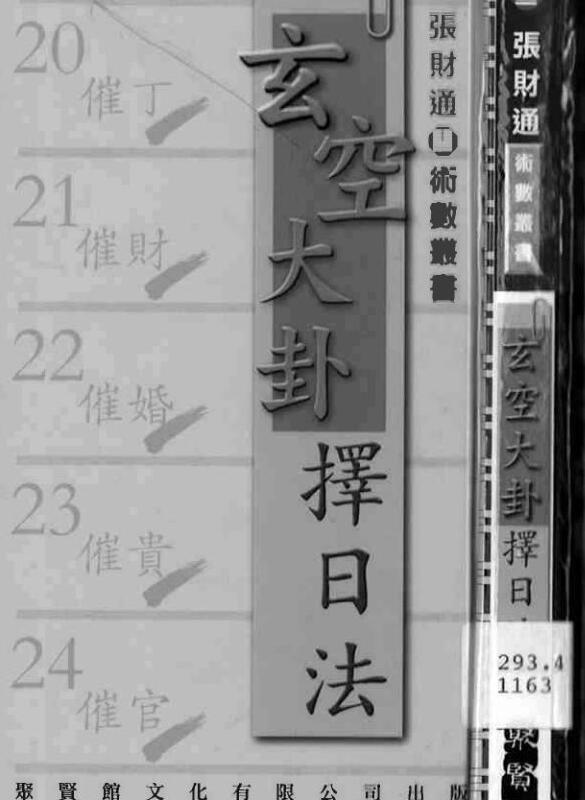 玄空大卦擇日法
張財通 術數叢書
20
催丁
21
催財
22
催婚
23
催貴
24
催官
聚賢館文化有限公司出版
張財通
術數叢書
玄空大卦擇日
293.4
1163
聚賢